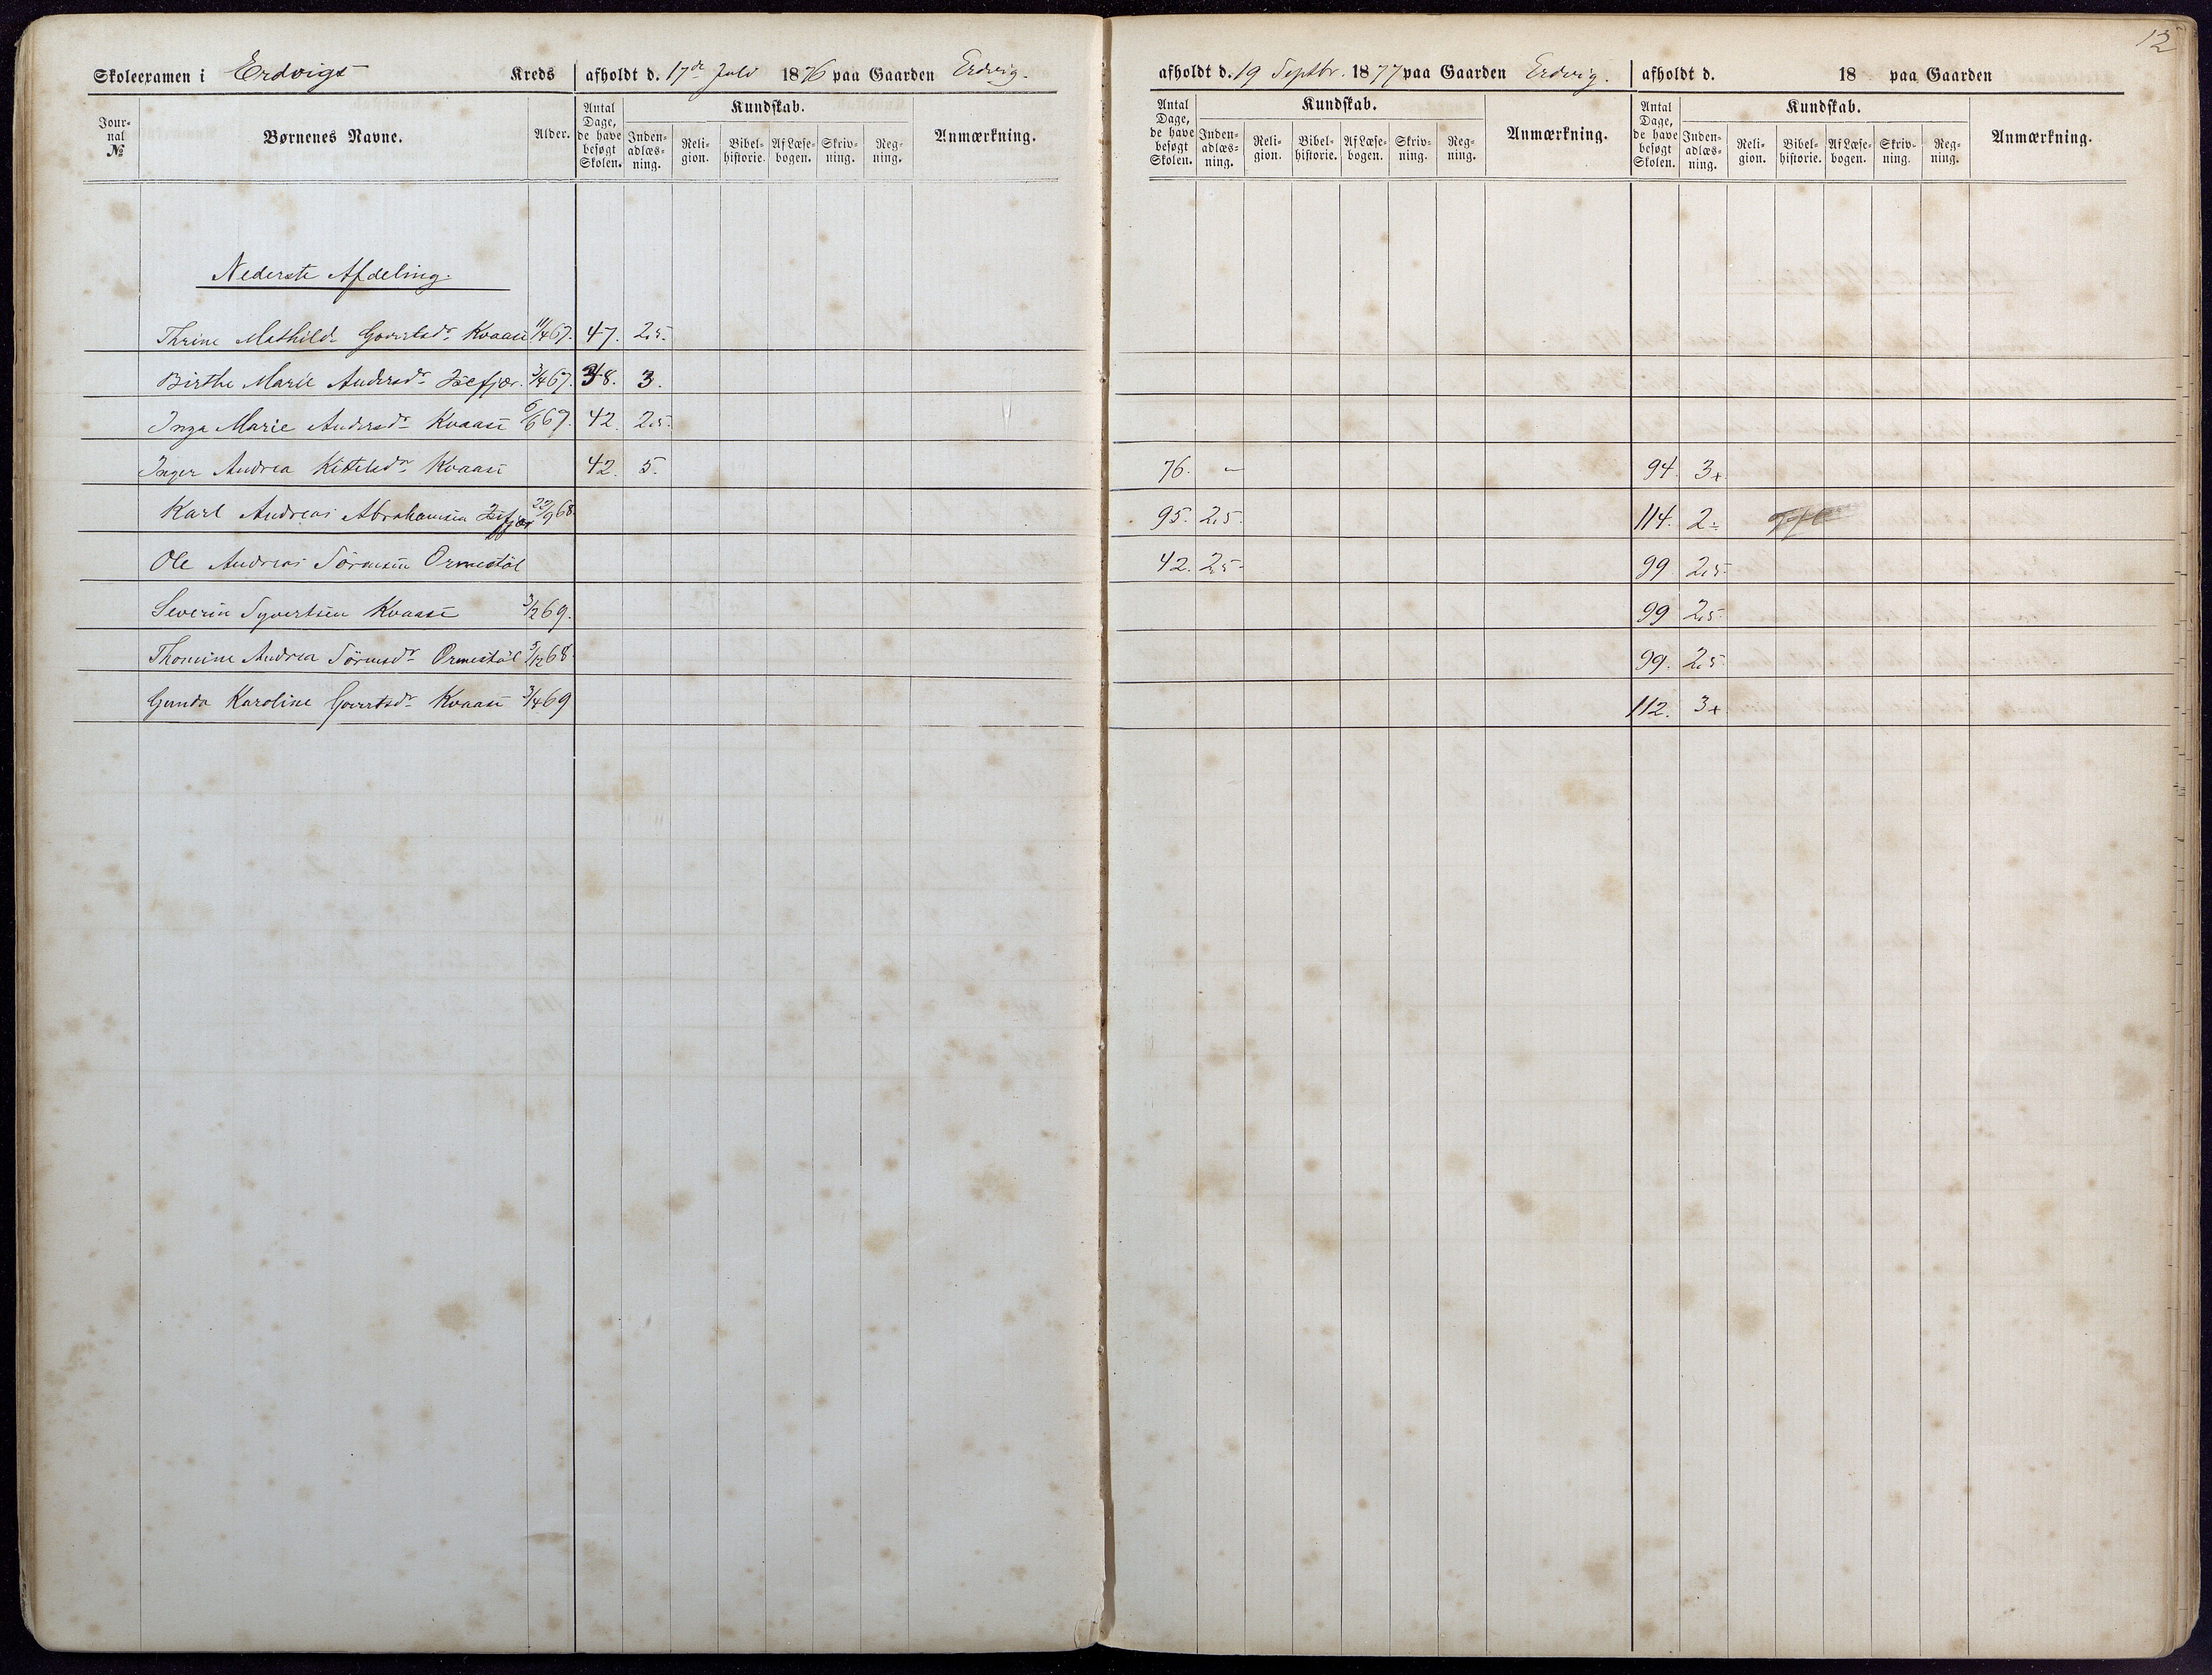 12
Skoleexamen i Erdvigs Kreds afholdt d. 17de Juli 1876 paa Gaarden Erdvig. afholdt d. 19 Septbr. 1877 paa Gaarden Erdvig. afholdt d. 18 paa Gaarden
Journal № Børnenes Navne. Alder. Antal Dage, de have besøgt Skolen. Kundskab. Indenadlæsning. Religion. Bibelhistorie. Af Læsebogen. Skrivning. Regning. Anmærkning. Antal Dage, de have besøgt Skolen. Kundskab. Indenadlæsning. Religion. Bibelhistorie. Af Læsebogen. Skrivning. Regning. Anmærkning. Antal Dage, de have besøgt Skolen. Kundskab. Indenadlæsning. Religion. Bibelhistorie. Af Læsebogen. Skrivning. Regning. Anmærkning.
Nederste Afdeling.
Thrine Mathilde Govertsdr Kvaase 11/4 67. 47. 2,5.
Birthe Marie Andersdr 3/4 67. 38. 3.
Inga Marie Andersdr Kvaase 6/6 67. 42. 2,5.
Inger Andrea Kittelsdr Kvaase 42. 5. 76. – 94. 3+
Karl Andreas Abrahamsen 22/9 68. 95. 2,5. 114. 2÷
Ole Andreas Sörensen Ormestöl 42. 2,5 99 2,5
Severin Syvertsen Kvaase 3/2 69. 99 2,5
Thomine Andrea Sörensdr Ormestöl 5/12 68 99. 2,5
Gunda Karoline Govertsdr Kvaase 3/4 69 112. 3+